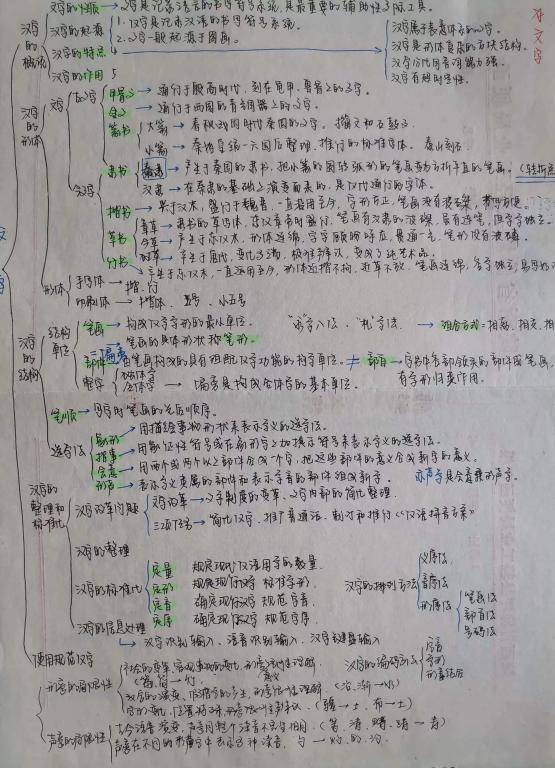 汉字的概说
汉字的性质 → 文字是记录语言的书写符号系统，是最重要的辅助性交际工具。
汉字的起源 1.汉字是记录汉语的书写符号系统。
2.文字一般起源于图画。
汉字的特点 4
汉字属于表意体系的文字。
汉字是形体复杂的方块结构。
汉字分化同音词能力强。
汉字有超时空性。
汉字的作用 5
汉字的形体
古文字
甲骨文 → 通行于殷商时代，刻在龟甲、兽骨上的文字。
金文 → 通行于西周的青铜器上的文字。
篆书
大篆 → 春秋战国时代秦国的文字。籀文和石鼓文
小篆 → 秦始皇统一六国后整理、推行的标准字体。泰山刻石
今文字
隶书
秦隶 → 产生于秦国的隶书，把小篆的圆转弧形的笔画变成方折平直的笔画。（转折点
汉隶 → 在秦隶的基础上演变而来的，是汉代通行的字体。
楷书 → 兴于汉末，盛行于魏晋，一直沿用至今，字形方正，笔画没有波磔，书写方便。
草书
章草 → 隶书的草写体，
今草 → 产生于东汉末，形体连绵，字字顾盼呼应，贯通一气，笔形没有波磔。
狂草 → 产生于唐代，变化多端，极难辨认，变成了纯艺术品。
行书 → 产生于东汉末，一直运用至今，形体近楷不拘，近草不放，笔画连绵，各字独立，易写
形体
手写体 → 楷、行
印刷体 → 楷体、五号、小五号
汉字的结构
结构单位
笔画 → 构成汉字字形的最小单位。
“永”字八法、“札”字法。→ 组合方式＝相离、相交、相
笔画的具体形状称笔形。
部件＝偏旁 由笔画构成的具有组配汉字功能的构字单位。≠ 部首 → 字书中各部领头的部件或笔画，
有字形归类作用。
整字 独体字
合体字 → 偏旁是构成合体字的基本单位。
笔顺 → 写字时笔画的先后顺序。
造字法
象形 → 用描绘事物形状来表示字义的造字法。
指事 → 用象征性符号或在象形字上加提示符号来表示字义的造字法。
会意 → 用两个或两个以上部件合成一个字，把这些部件的意义合成新字的意义。
形声 → 表示字义类属的部件和表示字音的部件组成新字。亦声字是会意兼形声字。
汉字的整理和标准化
汉字改革问题
汉字改革 → 文字制度的变革、文字内部的简化整理。
三项任务 → 简化汉字、推广普通话、制订和推行《汉语拼音方案》
汉字的整理
汉字的标准化
定量 规定现代汉语用字的数量。
定形 规定现行汉字标准字形。
定音 确定现行汉字规范字音。
定序 确定现行汉字规范字序。
汉字的排列方法
义序法
音序法
形序法
笔画法
部首法
号码法
汉字的信息处理
→ 汉字识别输入、语音识别输入、汉字键盘输入
汉字的编码方法
字音
字形
形音结合
使用规范汉字
形旁的局限性
声旁的局限性
古今语音演变，声旁同整个读音不完全相同
声旁在不同的形声字中表示多种读音，勺 → 灼、的、约